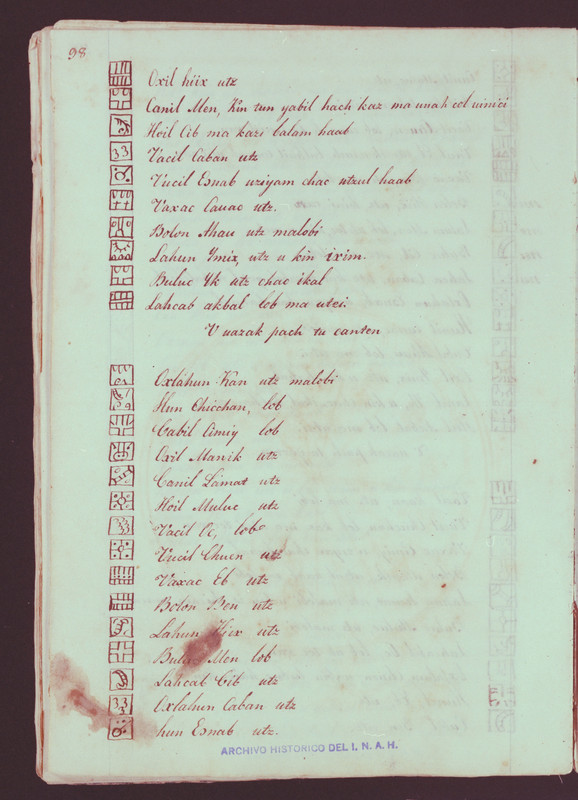 98
Oxil hiix utz
Canil Men, Kin tun yabil hach kaz ma unah col uinici
Hoil Cib ma kazi balam haab
Vacil Caban utz
Vucil Esnab uziyam chac utzul haab
Vaxac Cauac utz.
Bolon Ahau utz malobi
Lahun Ymix utz u kin ixim.
Buluc Yk utz chac ikal
Lahcab akbal lob ma utzi.
V uazak pach tu canten
Oxláhun Kan utz malobi
Hun Chicchan, lob
Cabil Cimiy lob
Oxil Manik utz
Canil Lámat utz
Hoil Muluc utz
Vacil Oc, lob
Vucil Chuen utz
Vaxac Eb utz
Bolon Ben utz
Lahun Hiix utz
Buluc Men lob
Lahcat Cib utz
Oxlahun Caban utz
hun Esnab utz.
ARCHIVO HISTORICO DEL I. N. A. H.